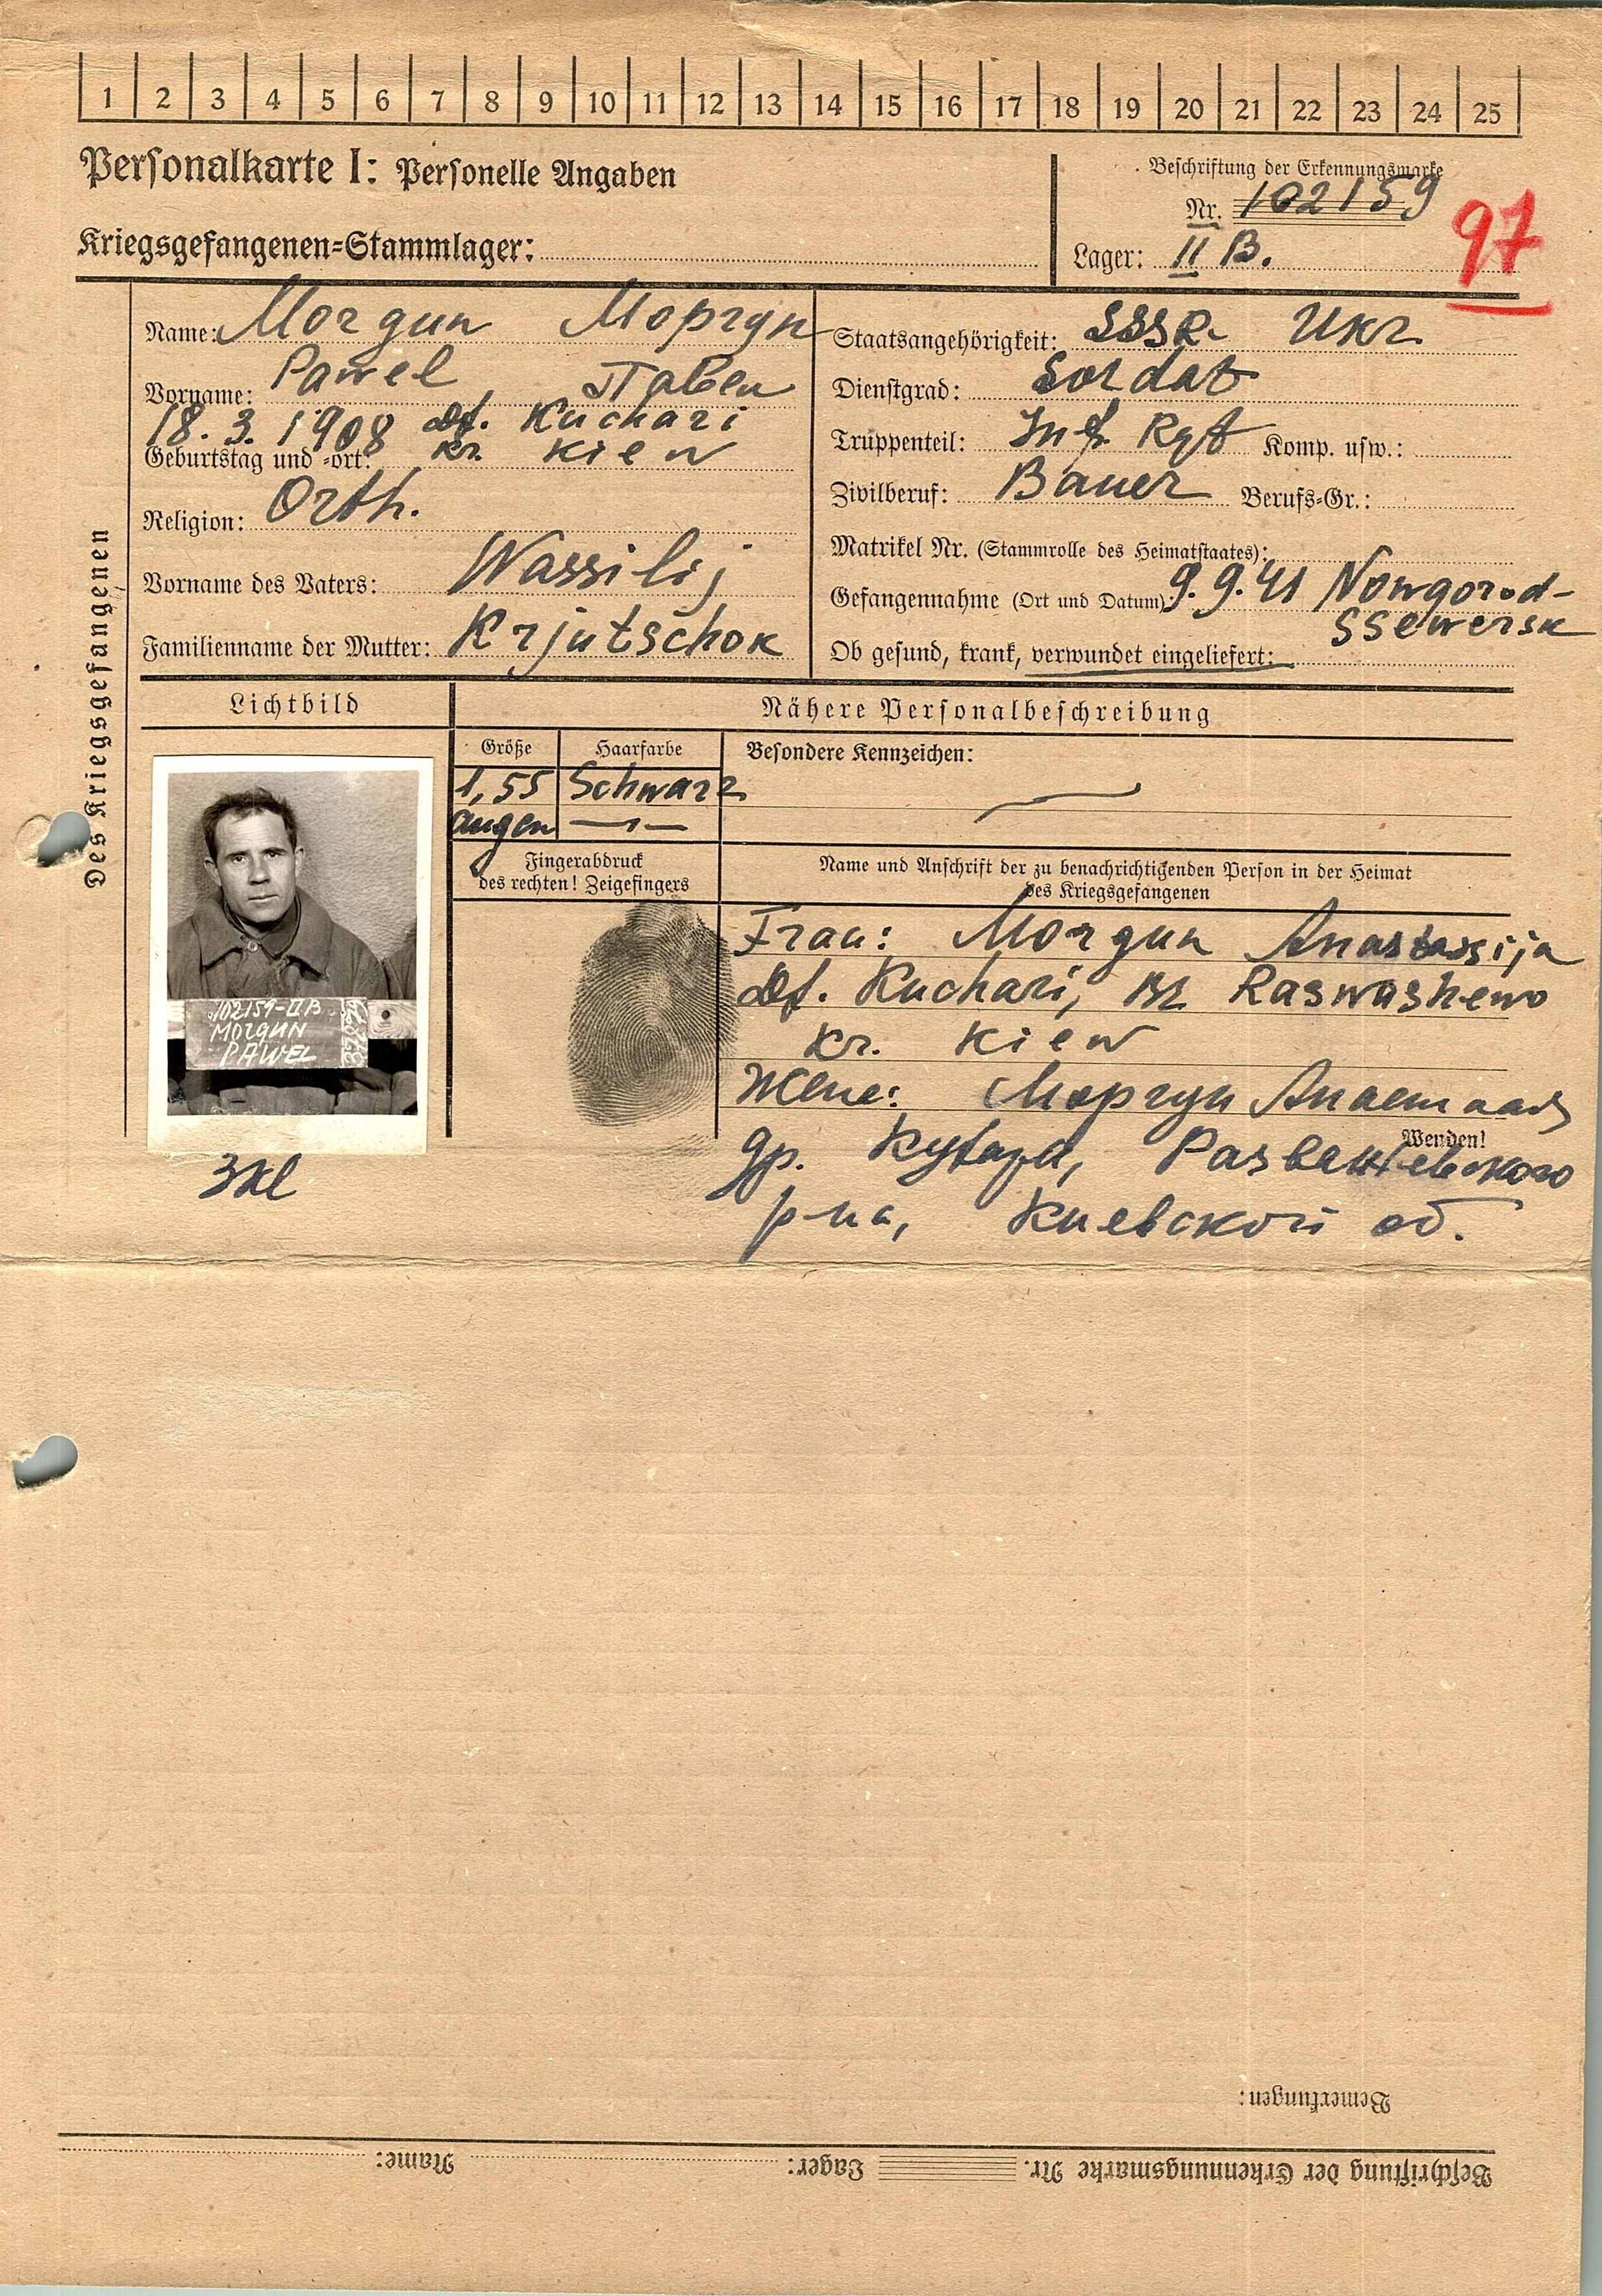 1 2 3 4 5 6 7 8 9 10 11 12 13 14 15 16 17 18 19 20 21 22 23 24 25
Personalkarte I: Personelle Angaben
Kriegsgefangenen-Stammlager:
Beschriftung der Erkennungsmarke
Nr. 102159
Lager: II B.
97
Des Kriegsgefangenen
Name: Morgun Моргун
Vorname: Pawel Павел
18.3.1908 Df. Kuchari
Geburtstag und -ort: kr. Kiew
Religion: Orth.
Vorname des Vaters: Wassilij
Familienname der Mutter: Krjutschok
Staatsangehörigkeit: SSSR. Ukr.
Dienstgrad: Soldat
Truppenteil: Inf. Rgt Komp. usw.:
Zivilberuf: Bauer Berufs-Gr.:
Matrikel Nr. (Stammrolle des Heimatstaates):
Gefangennahme (Ort und Datum): 9.9.41 Nowgorod-
Ssewersk
Ob gesund, krank, verwundet eingeliefert:
Lichtbild
Nähere Personalbeschreibung
Größe Haarfarbe Besondere Kennzeichen:
1,55 Schwarz
Augen
Fingerabdruck
des rechten! Zeigefingers
Name und Anschrift der zu benachrichtigenden Person in der Heimat
des Kriegsgefangenen
102159-IIB
MORGUN
PAWEL
Frau: Morgun Anastassija
Df. Kuchari, Raswashewo
kr. Kiew
Жене: Моргун
Wenden!
р-на, Киевской об.
Bemerkungen:
Beschriftung der Erkennungsmarke Nr. Lager: Name: